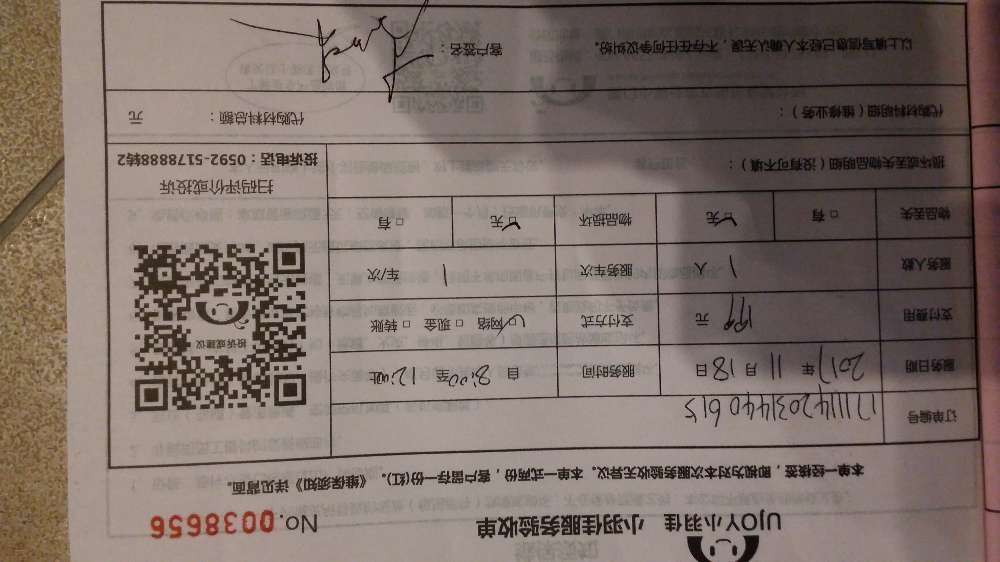 UJOY小羽佳 小羽佳服务验收单 No. 0038656
本单一经签接，即视为对本次服务验收无异议。本单一式两份，客户留存一份(红)。《维保须知》详见背面。
订单编号 171114203144061S
服务日期 2017年 11月 18日 服务时间 自 8:00 至 12:00 止
支付费用 199 元 支付方式 ☑ 网络 □ 现金 □ 转账
服务人数 1 人 服务车次 1 车/次
物品丢失 □ 有 ☑ 无 物品损坏 ☑ 无 □ 有
投诉或建议
扫码评价或投诉
投诉电话：0592-5178888转2
损坏丢失物品明细（没有可不填）：
代购材料明细（维修业务）： 代购材料总额： 元
以上填写信息已经本人确认无误，不存在任何争议纠纷。 客户签名：